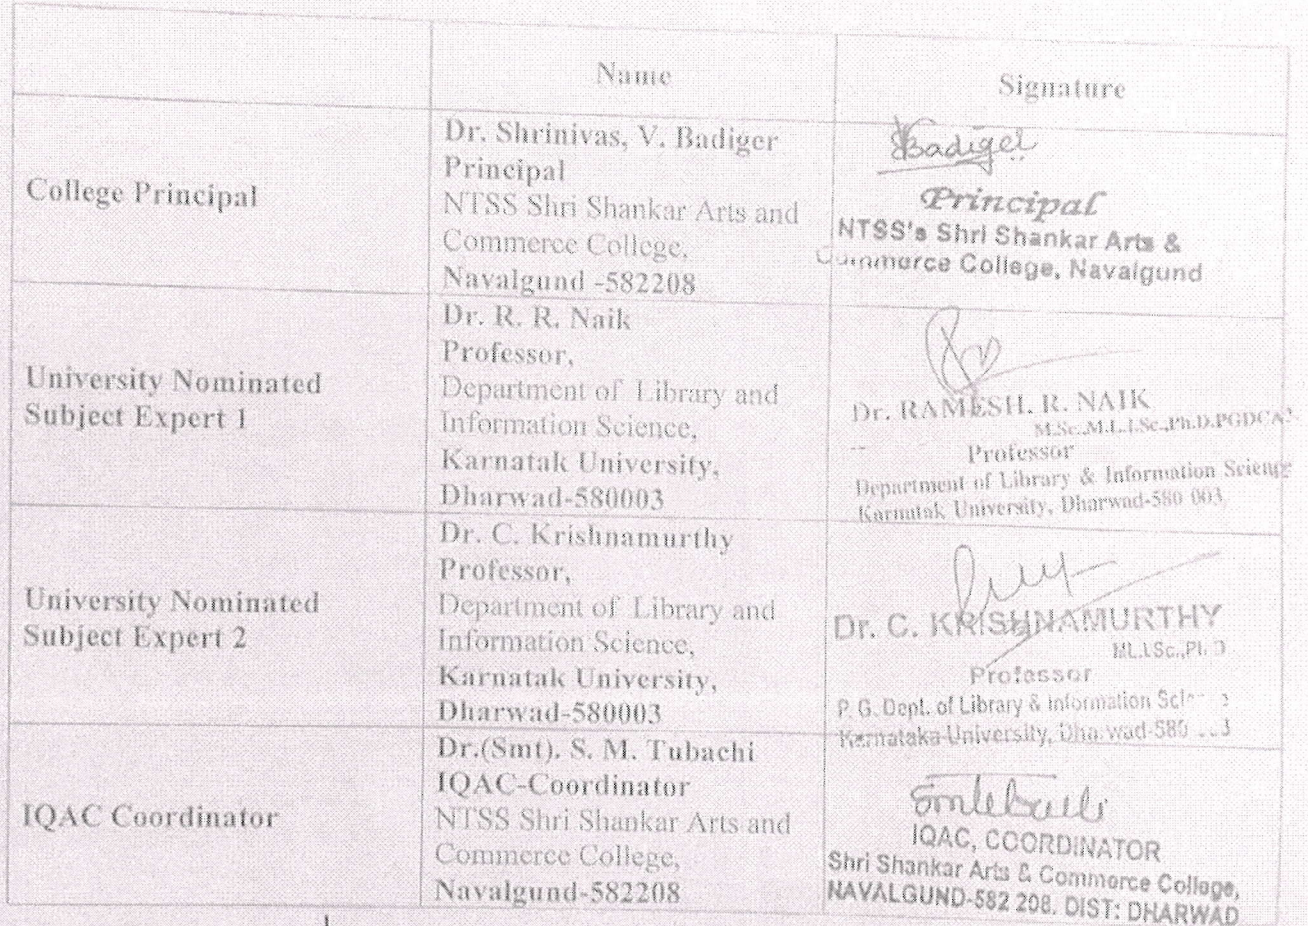 Name
Signature
College Principal
Dr. Shrinivas, V. Badiger
Principal
NTSS Shri Shankar Arts and
Commerce College,
Navalgund -582208
Badiger
Principal
NTSS's Shri Shankar Arts &
Commerce College, Navalgund
University Nominated
Subject Expert 1
Dr. R. R. Naik
Professor,
Department of Library and
Information Science,
Karnatak University,
Dharwad-580003
Dr. RAMESH. R. NAIK
M.Sc.,M.L.I.Sc.,Ph.D.PGDCA
Professor
Department of Library & Information Science
Karnatak University, Dharwad-580 003
University Nominated
Subject Expert 2
Dr. C. Krishnamurthy
Professor,
Department of Library and
Information Science,
Karnatak University,
Dharwad-580003
Dr. C. KRISHNAMURTHY
M.L.I.Sc.,Ph.D
Professor
P. G. Dept. of Library & Information Science
Karnataka University, Dharwad-580 003
IQAC Coordinator
Dr.(Smt). S. M. Tubachi
IQAC-Coordinator
NTSS Shri Shankar Arts and
Commerce College,
Navalgund-582208
IQAC, COORDINATOR
Shri Shankar Arts & Commerce College,
NAVALGUND-582 208. DIST: DHARWAD